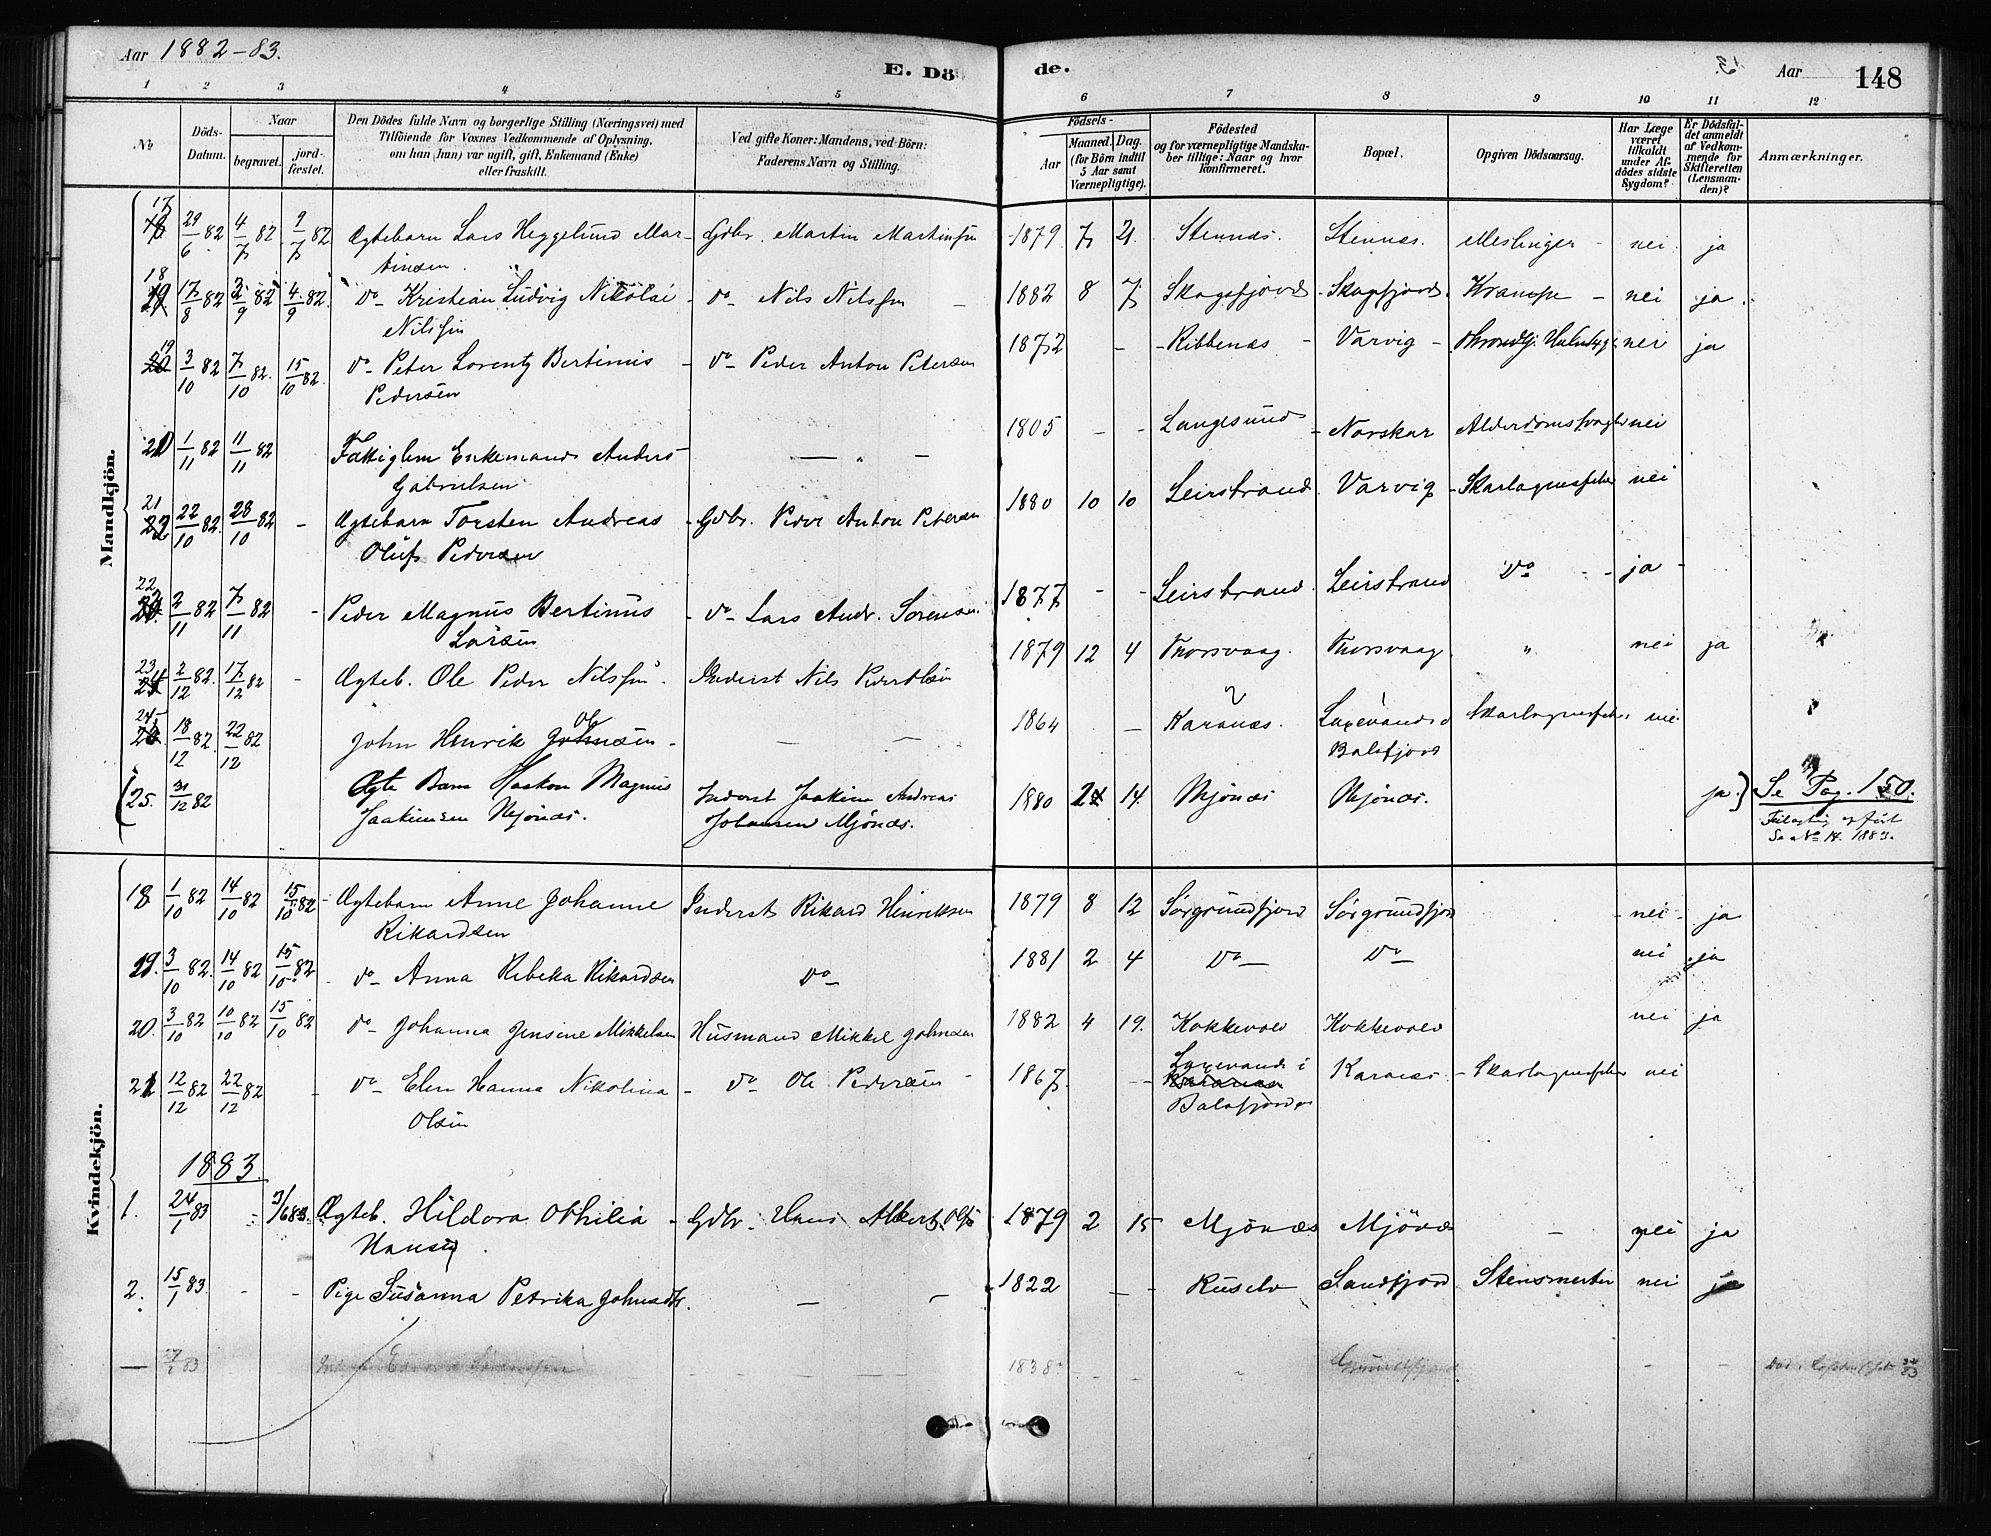 Aar 1882-83.
E. Dö
de.
Aar
148
1 2 3 4 5 6 7 8 9 10 11 12
No
Döds-
Datum.
Naar
begravet.
jord-
fæstet.
Den Dödes fulde Navn og borgerlige Stilling (Næringsvei) med
Tilföiende for Voxnes Vedkommende af Oplysning,
om han (hun) var ugift, gift, Enkemand (Enke)
eller fraskilt.
Ved gifte Koner: Mandens, ved Börn:
Faderens Navn og Stilling.
Födsels-
Aar
Maaned. Dag.
(for Börn indtil
5 Aar samt
Værnepligtige).
Födested
og for værnepligtige Mandska-
ber tillige: Naar og hvor
konfirmeret.
Bopæl.
Opgiven Dödsaarsag.
Har Læge
været
tilkaldt
under Af-
dödes sidste
Sygdom?
Er Dödsfal-
det anmeldt
af Vedkom-
mende for
Skifteretten
(Lensman-
den)?
Anmærkninger.
Mandkjön.
17 29/6 82 4/7 82 9/7 82 Ægtebarn Lars Heggelund Mar- Gdbr. Martin Martinsen 1879 7 21. Stennæs. Stennæs. Meslinger - nei ja
tinsen.
18 17/8 82 3/9 82 4/9 82. do Kristian Ludvig Nikolai - do Nils Nilssen 1882 8 7 Skogsfjord - Skogsfjord. Krampe - nei ja.
Nilssen
19 3/10 82 7/10 82. 15/10 82. do Peter Lorentz Bertinus - do Peder Anton Petersen 1872 - - Ribbenæs - Varvig - nei ja
Pedersen
20 1/11 82 11/11 82 Fattiglem Enkemand Anders - " - 1805 - - Langesund - Norskar nei
Gabrielsen
21 22/10 82. 28/10 82 - Ægtebarn Torsten Andreas - Gdbr. Peder Anton Petersen 1880 10 10 Leirstrand Varvig - nei
Oluf Pedersen
22 2/11 82 7/11 82 - Peder Magnus Bertinus - do Lars Andr. Sorensen 1877 - - Leirstrand. Leirstrand do - ja -
Larsen
23 2/12 82. 17/12 82 - Ægteb. Ole Peder Nilssen. Inderst Nils Peder Olsen 1879 12 4 Thorsvaag. Thorsvaag. " nei ja
24 18/12 82. 22/12 82 John Henrik Johnsen - Ols - - 1864 - Karanæs. nei
Balsfjord
(25. 31/12 82 Ægte Barn Haakon Magnus Inderst Joakim Andreas 1880 14. Mjönæs Mjönæs. ja.) Se Pag. 150.
Joakimsen Mjönæs. Johansen Mjönæs.
Se No 14. 1883.
Kvindekjön.
18 1/10 82 14/10 82 15/10 82 - Ægtebarn Anne Johanne Inderst Rikard Henriksen 1879 8 12 Sörgrundfjord Sörgrundfjord - nei - ja
Rikardsen
19. 3/10 82. 14/10 82 15/10 82 - do Anna Rebeka Rikardsen do 1881 2 4 do do nei ja
20. 3/10 82 10/10 82 15/10 82 do Johanna Jensine Mikkelsen Husmand Mikkel Johnsen 1882 4 19. Kokkevold Kokkevold nei ja
21 12/12 82 22/12 82 - do Elen Hanna Nikolina - do Ole Pedersen - 1867. - - Karanæs Karanæs - nei
Olsen Balsfjorden
1883.
1. 24/1 83 3/6 83. Ægteb. Hildora Othilia - Gdbr. Hans Albert Olsen 1879 2 15 Mjönæs Mjönæs - nei ja
Hansen
2. 15/1 83. - - Pige Susanna Petrika Johnsdtr. - - 1822 - - Ruselv Sandfjord nei ja
- 83 1838 - - Grundfjord - -